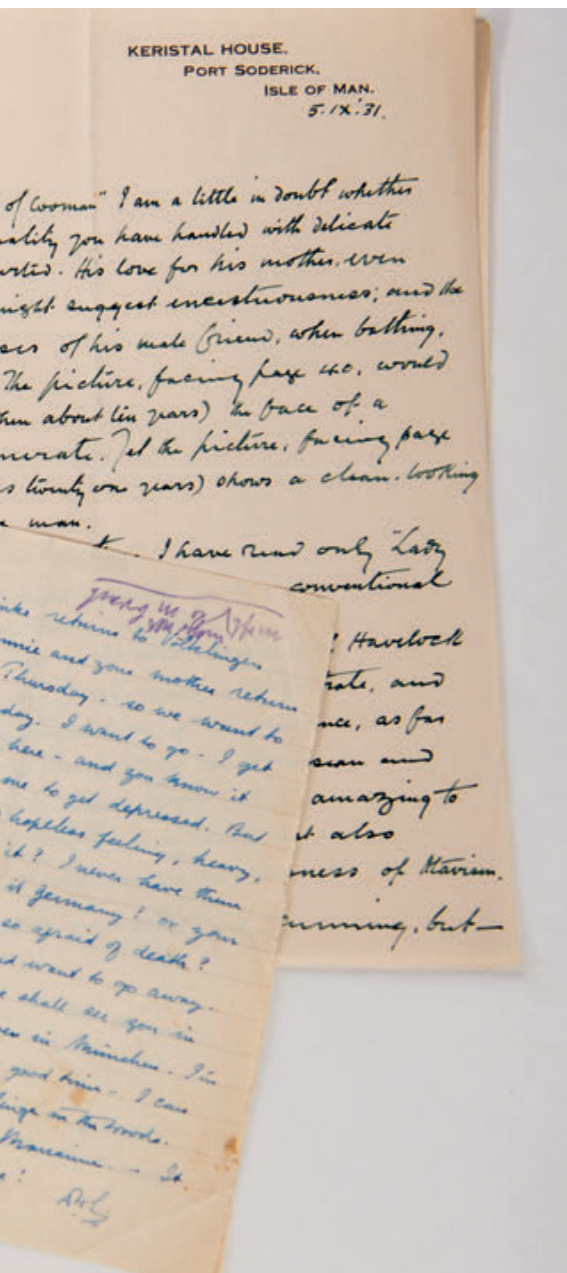 KERISTAL HOUSE,
PORT SODERICK,
ISLE OF MAN.
5.IX.'31.
of Woman" I am a little in doubt whether
you have handled with delicate
His love for his mother, even
might suggest incestuousness; and the
of his male friend, when bathing,
The picture, facing page 40, would
about ten years) the face of a
Yet the picture, facing page
twenty one years) shows a clean-looking
man.
I have read only "Lady
conventional
Havelock
and
as far
and
amazing to
also
of Atavism.
cunning, but—
returns to Völklingen
and your mother return
Thursday - so we want to
day. I want to go - I get
here - and you know it
me to get depressed. But
hopeless feeling, heavy,
it? I never have them
it Germany? or your
so afraid of death?
want to go away.
shall see you in
in München. I'm
good time - I can
in the woods.
Marianne - It